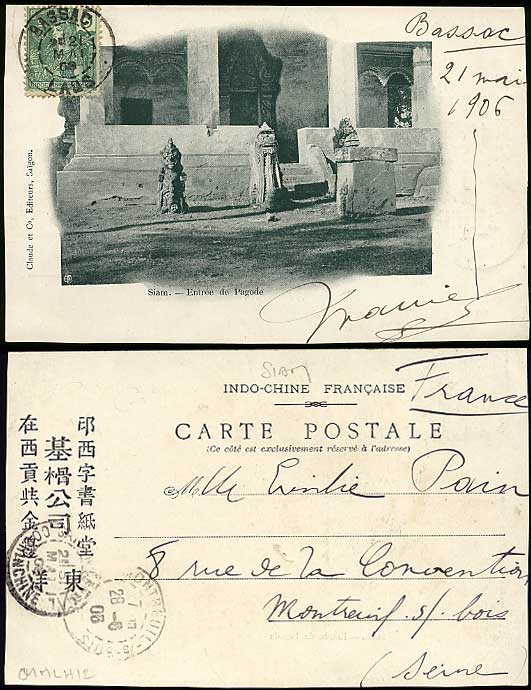 BASSAC
21
MAI
06
LAOS
Bassac
21 mai
1906
Claude et Co, Editeurs, Saïgon.
Siam. — Entrée de Pagode
SIAM
INDO-CHINE FRANÇAISE
France
CARTE POSTALE
(Ce côté est exclusivement réservé à l'adresse)
Mlle Emilie Pain
8 rue de la Convention
Montreuil s/ bois
(Seine)
印西字書紙堂
基㮙公司
在西貢共金
東
洋
MONTREUIL-S-BOIS
28-6
06